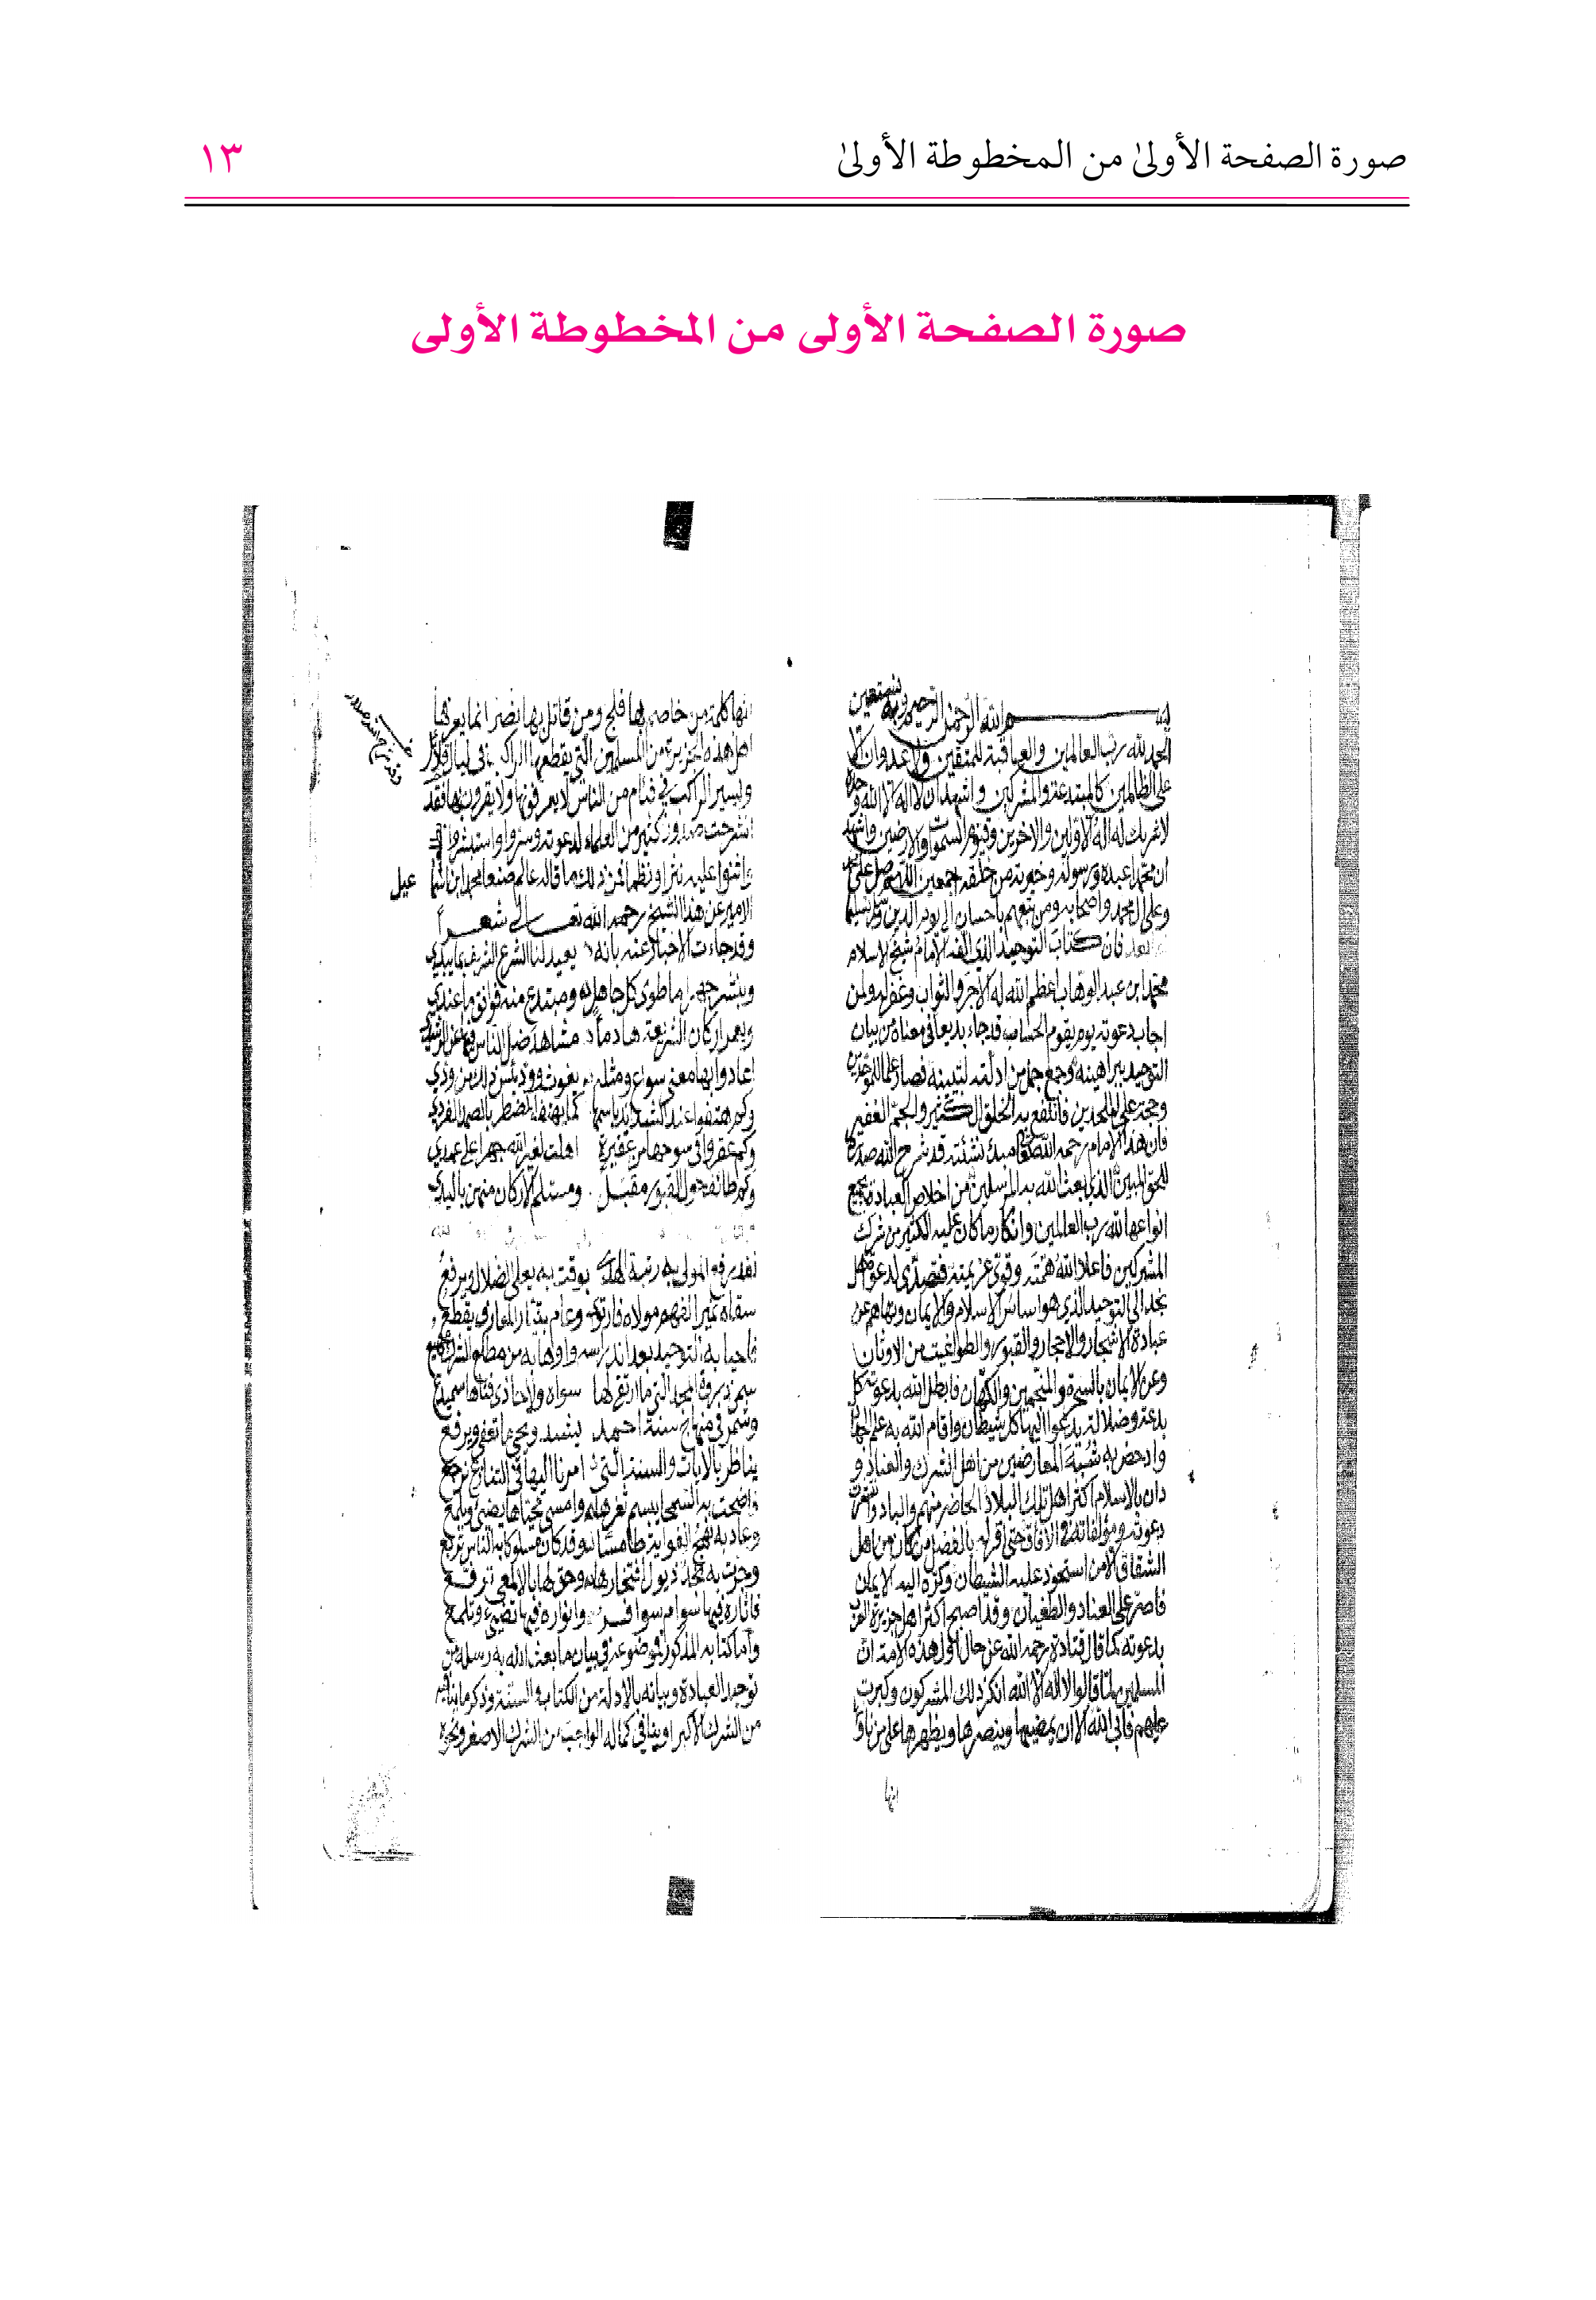 صورة الصفحة الأولىٰ من المخطوطة الأولىٰ
١٣
صورة الصفحة الأولى من المخطوطة الأولى
بسم الله الرحمن الرحيم وبه نستعين
الحمد لله رب العالمين والعاقبة للمتقين ولا عدوان الا
على الظالمين كالمبتدعة والمشركين واشهد ان لا اله الا الله وحده
لا شريك له اله الاولين والاخرين وقيوم السموات والارضين واشهد
ان محمدا عبده ورسوله وخيرته من خلقه اجمعين اللهم صل على محمد
وعلى ال محمد واصحابه ومن تبعهم باحسان الى يوم الدين وسلم تسليما
بعد فان كتاب التوحيد الذي الفه الامام شيخ الاسلام
محمد ابن عبد الوهاب اعظم الله له الاجر والثواب وغفر له ولمن
اجاب دعوته يوم يقوم الحساب قد جاء بديعا في معناه من بيان
التوحيد ببراهينه وجمع جملا من ادلته لتبيينه فصار علما للموحدين
وحجة على الملحدين فانتفع به الخلق الكثير والجم الغفير
فان هذا الامام رحمه الله في مبدئ نشئته قد شرح الله صدره
للحق المبين الذي بعث الله به المرسلين من اخلاص العبادة بجميع
انواعها لله رب العالمين وانكار ما كان عليه الكثير من شرك
المشركين فاعلا الله همته وقوى عزيمته فتصدى لدعوة اهل
نجد الى التوحيد الذي هو اساس الاسلام والايمان ونهاهم عن
عبادة الاشجار والاحجار والقبور والطواغيت من الاوثان
وعن الايمان بالسحرة والمنجمين والكهان فابطل الله بدعوته كل
بدعة وضلالة يدعوا اليها كل شيطان واقام الله به علم الجهاد
وادحض به شبه المعارضين من اهل الشرك والعناد و
دان بالاسلام اكثر اهل تلك البلاد الحاضر منهم والباد وانتشرت
دعوته ومؤلفاته في الافاق حتى اقر له بالفضل من كان من اهل
الشقاق الا من استحوذ عليه الشيطان وكره اليه الايمان
فاصر على العناد والطغيان وقد اصبح اكثر اهل جزيرة العرب
بدعوته كما قال قتادة رحمه الله عن حال اول هذه الامة ان
المسلمين لما قالوا لا اله الا الله انكر ذلك المشركون وكبرت
عليهم فابى الله الا ان يمضيها وينصرها ويظهرها على من ناواها
انها
انها كلمة من خاصم بها فلج ومن قاتل بها نصر انما يعرفها
اهل هذه الجزيرة من المسلمين التي يقطعها الراكب في ليال قلائل
ويسير الراكب في فئام من الناس لا يعرفونها ولا يقرون بها فقد
انشرحت صدور كثير من العلماء لدعوته وسروا واستبشروا
واثنوا عليه نثرا ونظما فمن ذلك ما قاله عالم صنعا محمد ابن اسماعيل
الامير عن هذا الشيخ رحمه الله تعالى شعرا
وقد جاءت الاخبار عنه بانه يعيد لنا الشرع الشريف بما يبدي
وينشر جهرا ما طوى كل جاهل ومبتدع منه فوافق ما عندي
ويعمر اركان الشريعة هادما مشاهد ضل الناس فيها عن الرشد
اعادوا بها معنى سواع ومثله يغوث وود بئس ذلك من ودي
وكم هتفوا عند الشدائد باسمها كما يهتف المضطر بالصمد الفرد
وكم عقروا في سوحها من عقيرة اهلت لغير الله جهرا على عمد
وكم طائف حول القبور مقبل ومستلم الاركان منهن باليدي
لقد رفع المولى به رتبة الهدى بوقت به يعلى الضلال ويرفع
سقاه نمير الفهم مولاه فارتوى وعام بتيار المعارف يقطع
فاحيا به التوحيد بعد اندراسه واوها به من مطلع الشرك مهيع
سمى ذروة المجد التي ما ارتقى لها سواه ولا حاذى فناها سميدع
وشمر في منهاج سنة احمد يشيد ويحيي ما تعفى ويرفع
يناظر بالايات والسنة التي امرنا اليها في التنازع نرجع
فاضحت به السمحا يبسم ثغرها وامسى محياها يضيء ويلمع
وعاد به نهج الغواية طامسا وقد كان مسلوكا به الناس تربع
وجرت به نجد ذيول افتخارها وحق لها بالالمعي ترفع
فاثاره فيها سوام سوافر وانواره فيها تضيء وتلمع
واما كتابه المذكور فموضوعه في بيان ما بعث الله به رسله من
توحيد العبادة وبيانه بالادلة من الكتاب والسنة وذكر ما ينافيه
من الشرك الاكبر او ينافي كماله الواجب من الشرك الاصغر ونحوه